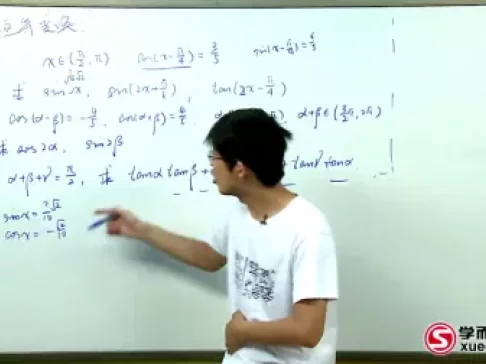 恒等变换
x∈(π/2, π)  cos(x-π/4)=3/5  sin(x-π/4)=4/5
求 sin x, sin(2x+π/6), tan(2x-π/4)
cos(α-β)=-4/5, cos(α+β)=4/5, α+β∈(3/2π, 2π)
求 cos2α, sin2β
α+β+γ=π/2, 求 tanα tanβ + tanγ tanα
sin x = 7√2/10
cos x = -√2/10
学而
xue